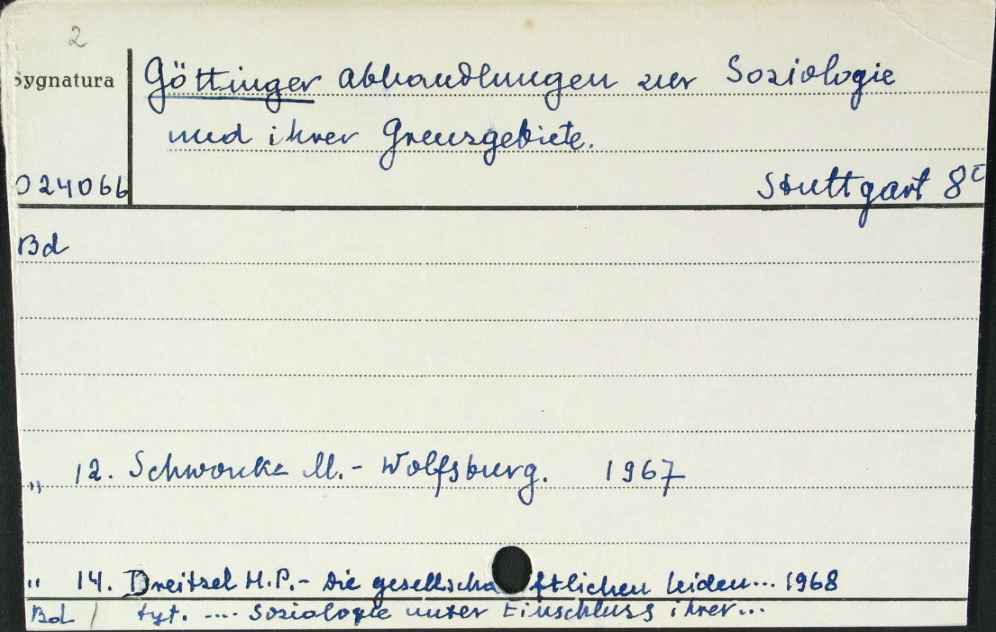 2
Sygnatura
Göttinger Abhandlungen zur Soziologie
und ihrer Grenzgebiete.
024066
Stuttgart 8°
Bd
„ 12. Schwonke M.- Wolfsburg. 1967
„ 14. Dreitzel H.P.- Die gesellschaftlichen Leiden... 1968
Bd / tyt. .... Soziologie unter Einschluss ihrer...